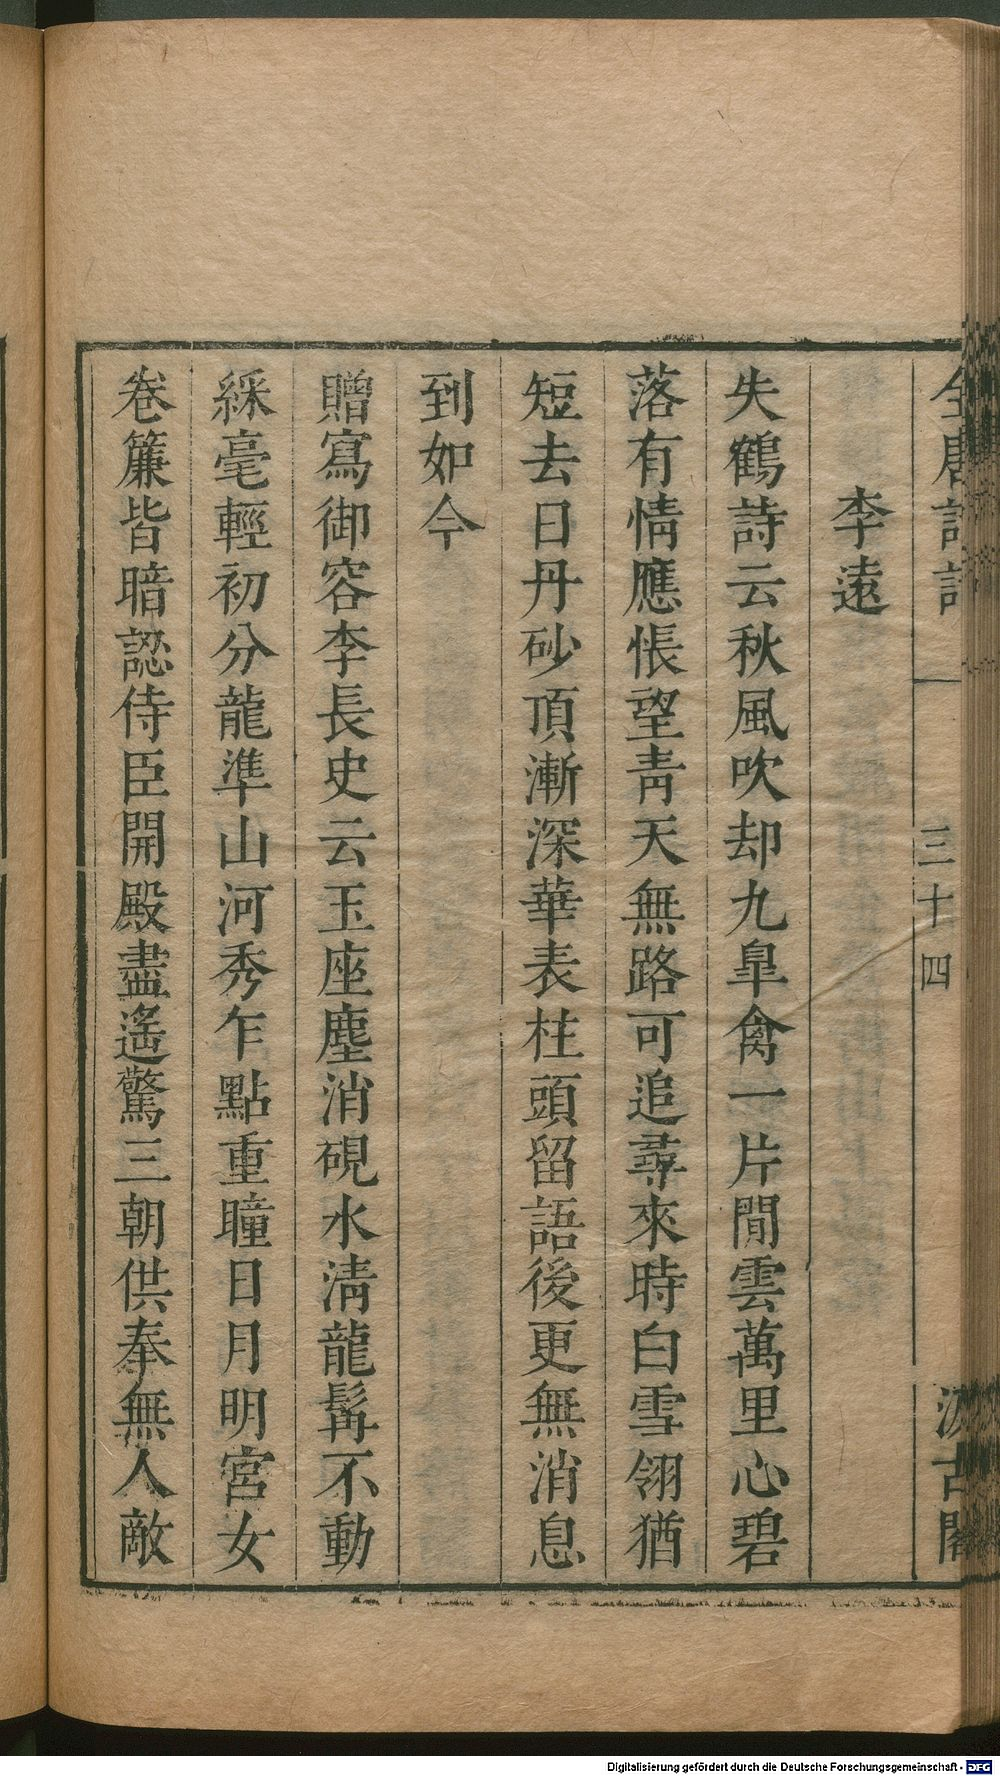 全唐詩話 三十四 汲古閣
李遠
失鶴詩云秋風吹却九臯禽一片閒雲萬里心碧
落有情應悵望靑天無路可追尋來時白雪翎猶
短去日丹砂頂漸深華表柱頭留語後更無消息
到如今
贈寫御容李長史云玉座塵消硯水淸龍髯不動
綵毫輕初分龍準山河秀乍點重瞳日月明宮女
卷簾皆暗認侍臣開殿盡遙驚三朝供奉無人敵
Digitalisierung gefördert durch die Deutsche Forschungsgemeinschaft - DFG